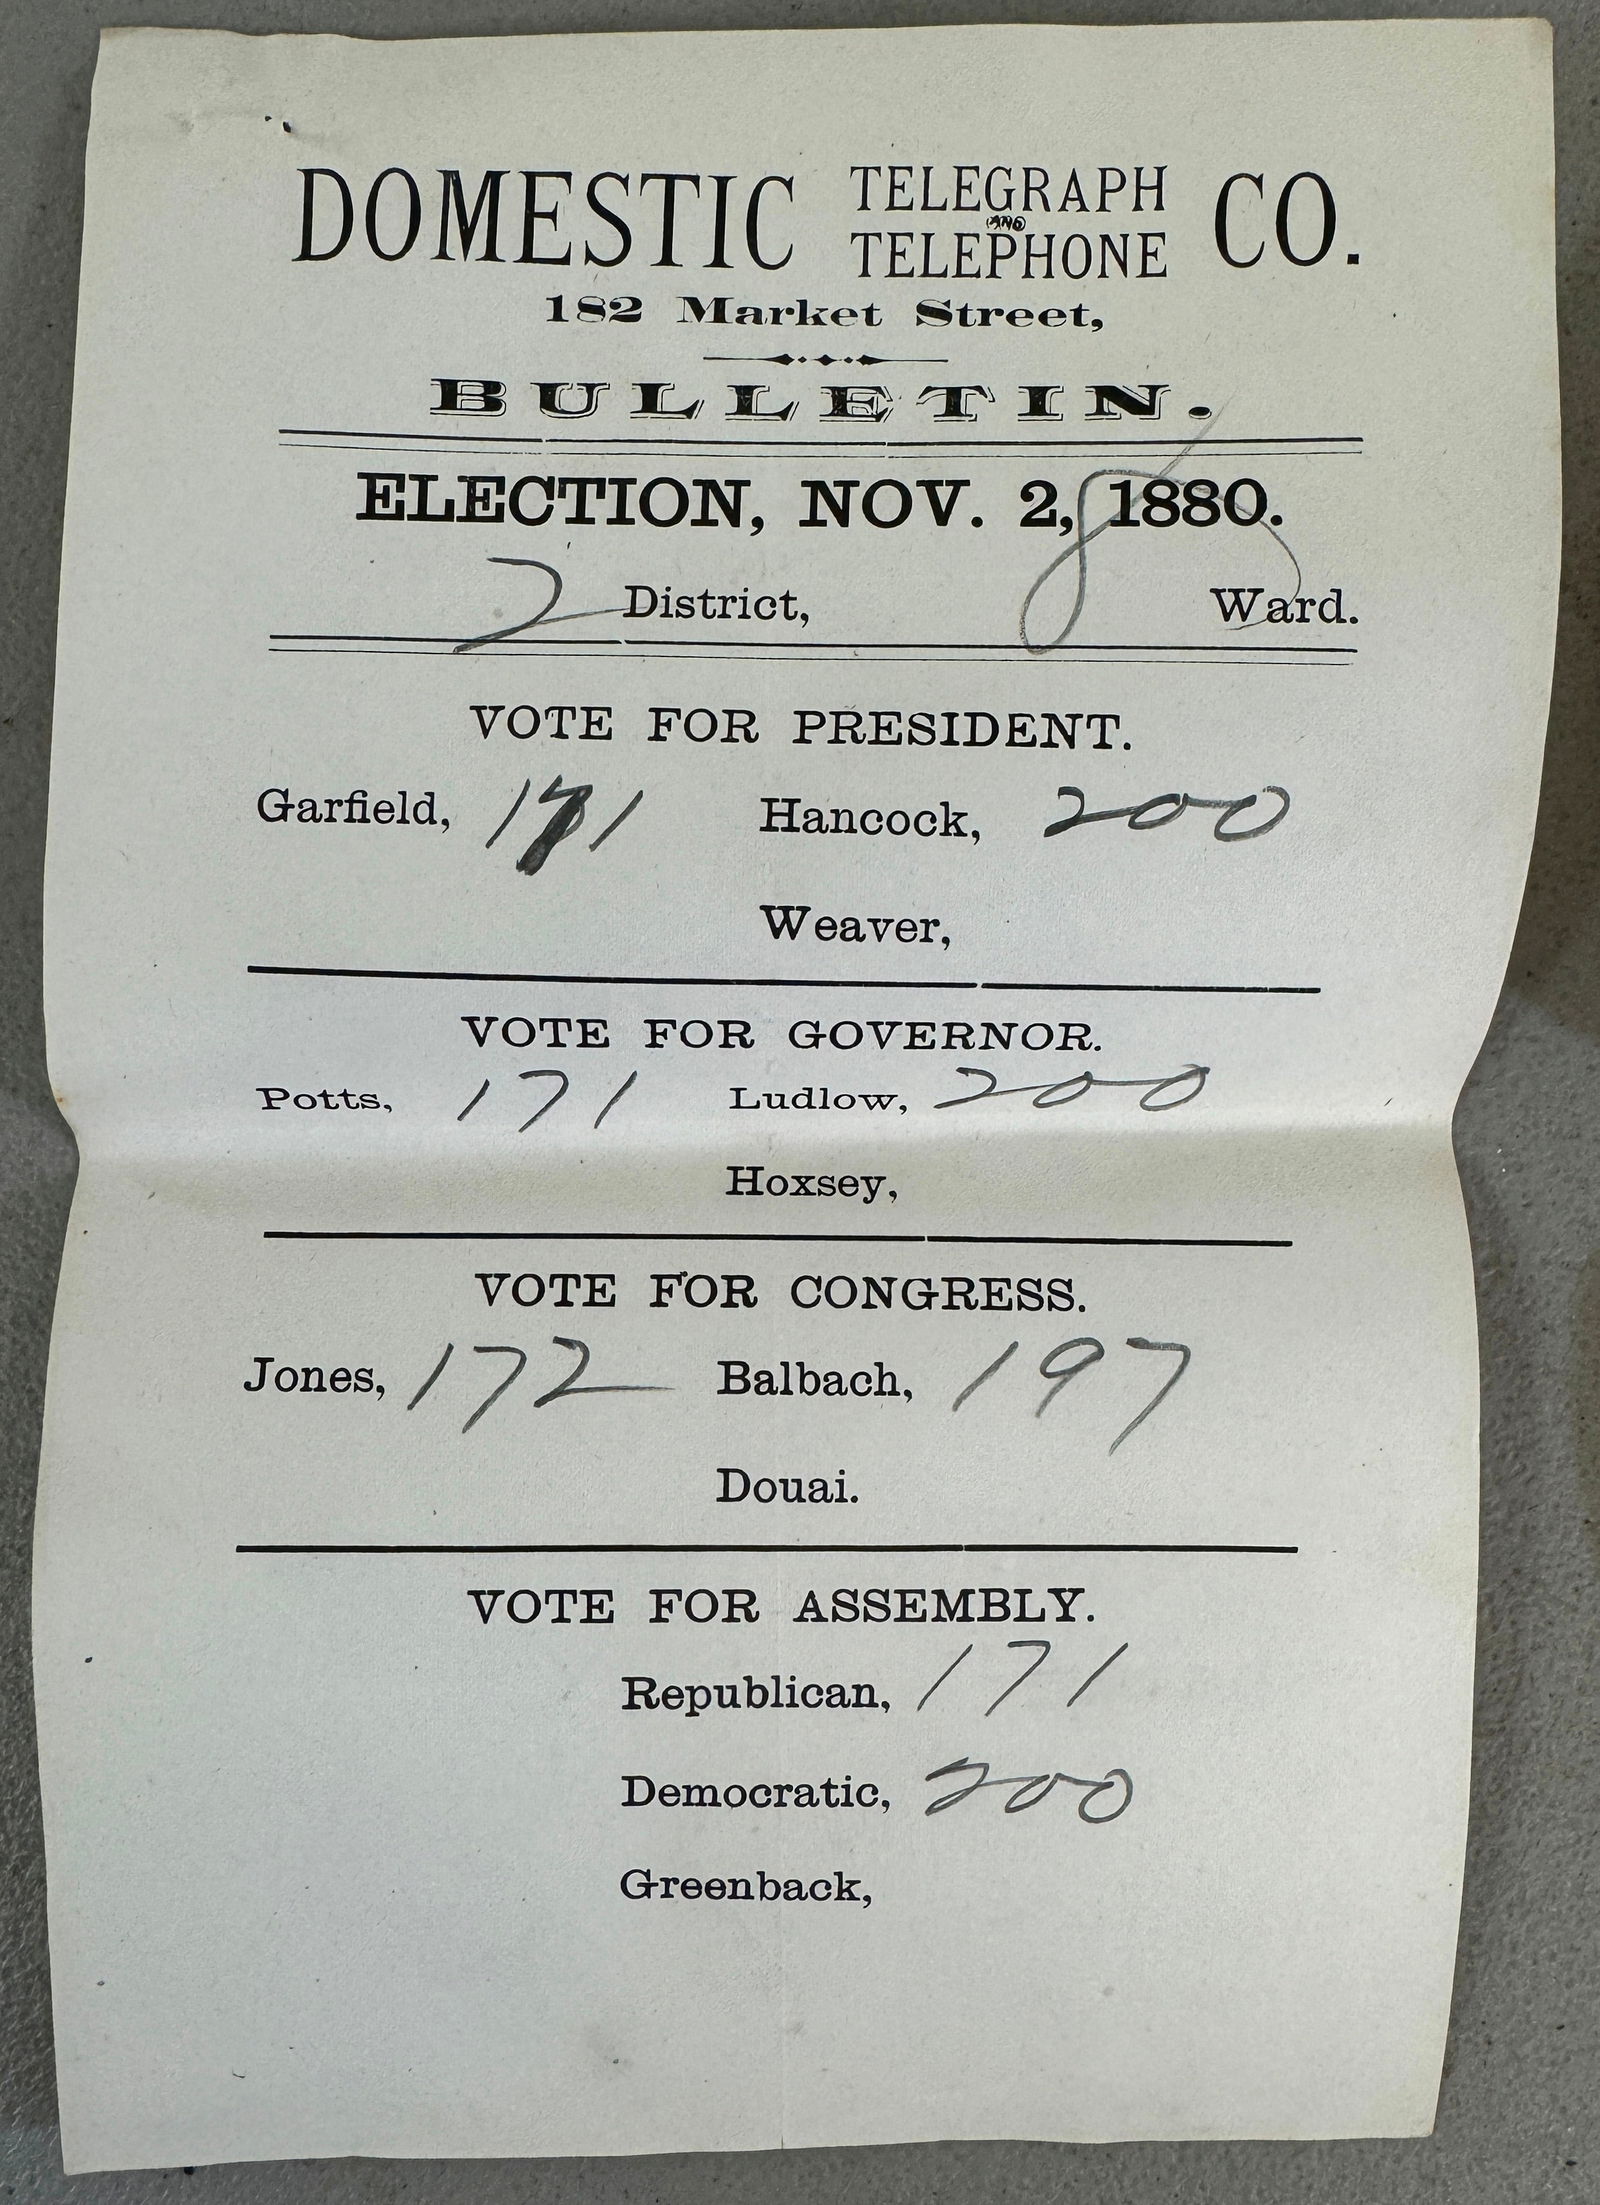 DOMESTIC TELEGRAPH AND TELEPHONE CO.
182 Market Street,
BULLETIN.
ELECTION, NOV. 2, 1880.
2 District, 8 Ward.
VOTE FOR PRESIDENT.
Garfield, 171 Hancock, 200
Weaver,
VOTE FOR GOVERNOR.
Potts, 171 Ludlow, 200
Hoxsey,
VOTE FOR CONGRESS.
Jones, 172 Balbach, 197
Douai.
VOTE FOR ASSEMBLY.
Republican, 171
Democratic, 200
Greenback,